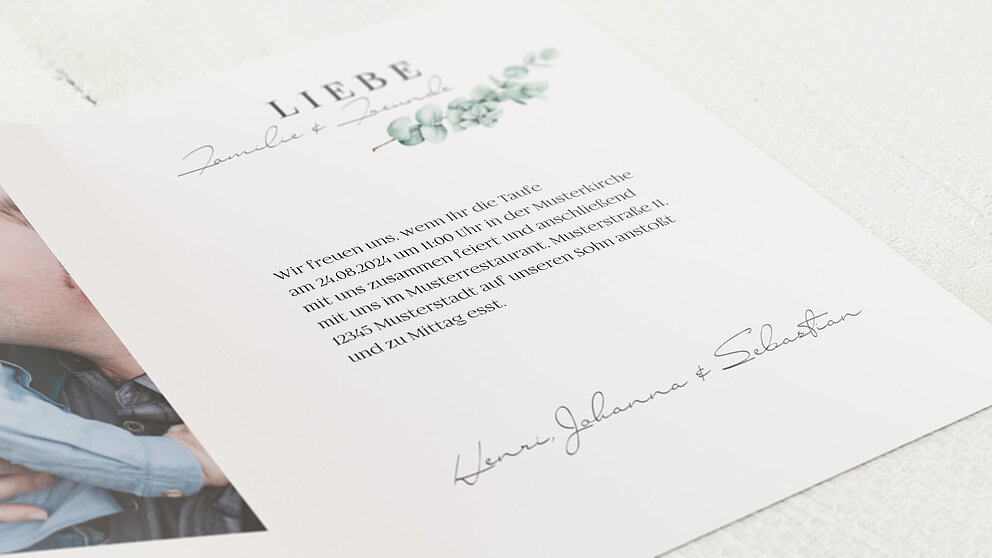 LIEBE
Familie & Freunde
Wir freuen uns, wenn Ihr die Taufe
am 24.08.2024 um 11:00 Uhr in der Musterkirche
mit uns zusammen feiert und anschließend
mit uns im Musterrestaurant, Musterstraße 11,
12345 Musterstadt auf unseren Sohn anstoßt
und zu Mittag esst.
Henri, Johanna & Sebastian